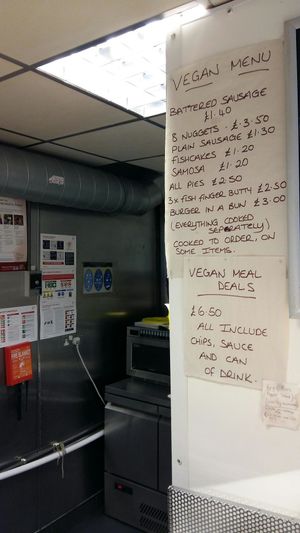 VEGAN MENU
BATTERED SAUSAGE
£1.40
8 NUGGETS . £.3.50
PLAIN SAUSAGE £1.30
FISHCAKES £1.20
SAMOSA £1.20
ALL PIES £2.50
3x FISH FINGER BUTTY £2.50
BURGER IN A BUN £3.00
(EVERYTHING COOKED
SEPARATELY)
COOKED TO ORDER, ON
SOME ITEMS.
VEGAN MEAL
DEALS
£6.50
ALL INCLUDE
CHIPS, SAUCE
AND CAN
OF DRINK.